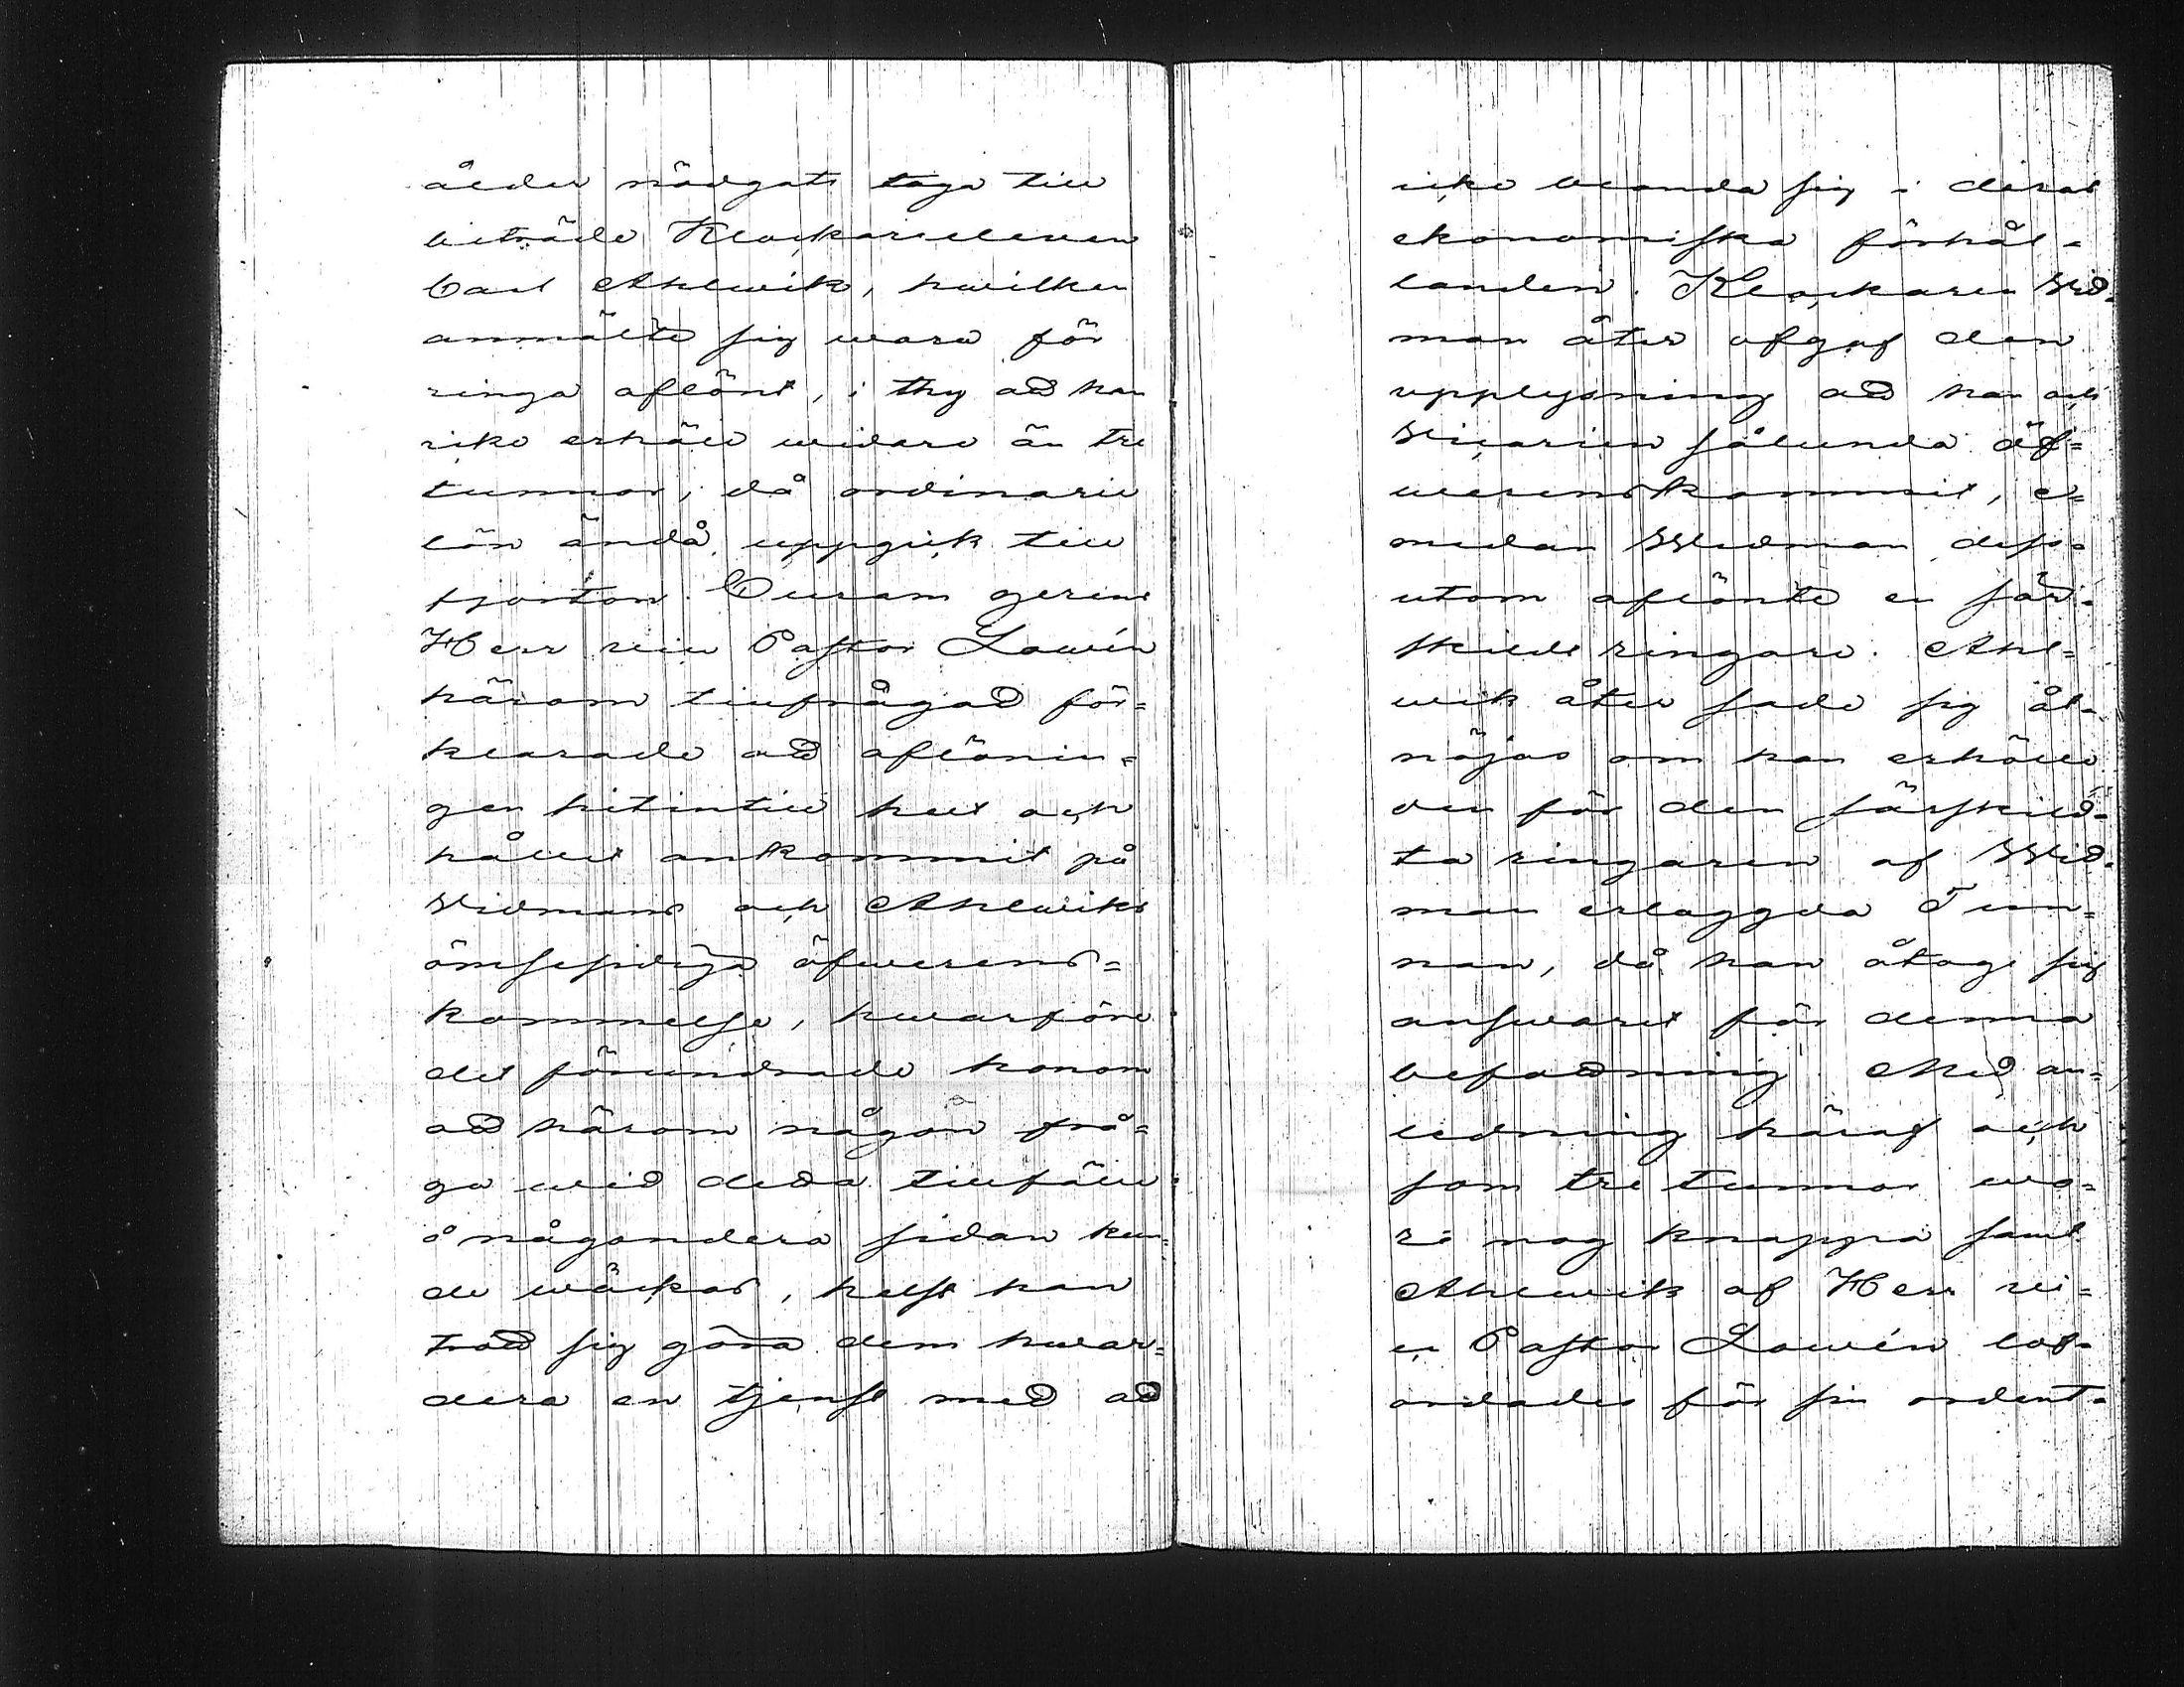 ålder nödgats taga till
biträde Klockareeleven
Carl Ahlwik, hwilken
anmälte sig wara för
ringa aflönt, i thy att han
icke erhöll widare än tre
tunnor, då ordinarie
lön ändå uppgick till
fjorton. Curam gerens
Herr vice Pastor Lawén
härom tillfrågad för=
klarade att aflönin=
gen hitintill helt och
hållet ankommit på
Widmans och Ahlwiks
ömsesidiga öfwerens=
kommelse, hwarföre
det förundrade honom
att härom någon frå=
ga wid detta tillfälle
å någondera sidan kun=
de wäckas, helst han
trodt sig göra dem hwar=
dera en tjenst med att
icke blanda sig i deras
ekonomiska förhål=
landen. Klockaren Wid=
man åter afgaf den
upplysning att han och
Vicarien sålunda öf=
werenskommit, e=
medan Widman dess=
utom aflönte en sär=
skild ringare. Ahl=
wik åter sade sig åt=
nöjas om han erhölle
den för den särskild=
ta ringaren af Wid=
man erlaggda Tun=
nan, då han åtoge sig
answaret för denna
befattning. Med an=
ledning häraf och
som tre tunnor wo=
ro nog knappa samt
Ahlwik af Herr vi=
ce Pastor Lawén lof=
ordades för sin ordent=